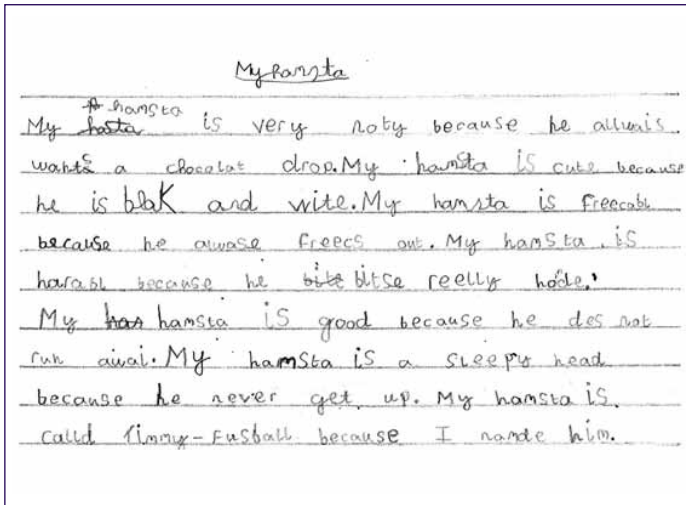 My hamsta
My hamsta is very noty because he allwais
wants a chocolat drop. My hamsta is cute because
he is blak and wite. My hamsta is freecabl
because he alwase freecs out. My hamsta is
harabl because he bitse reelly hode.
My hamsta is good because he des not
run awai. My hamsta is a sleepy head
because he never get up. My hamsta is
calld Timmy-Fusball because I namde him.